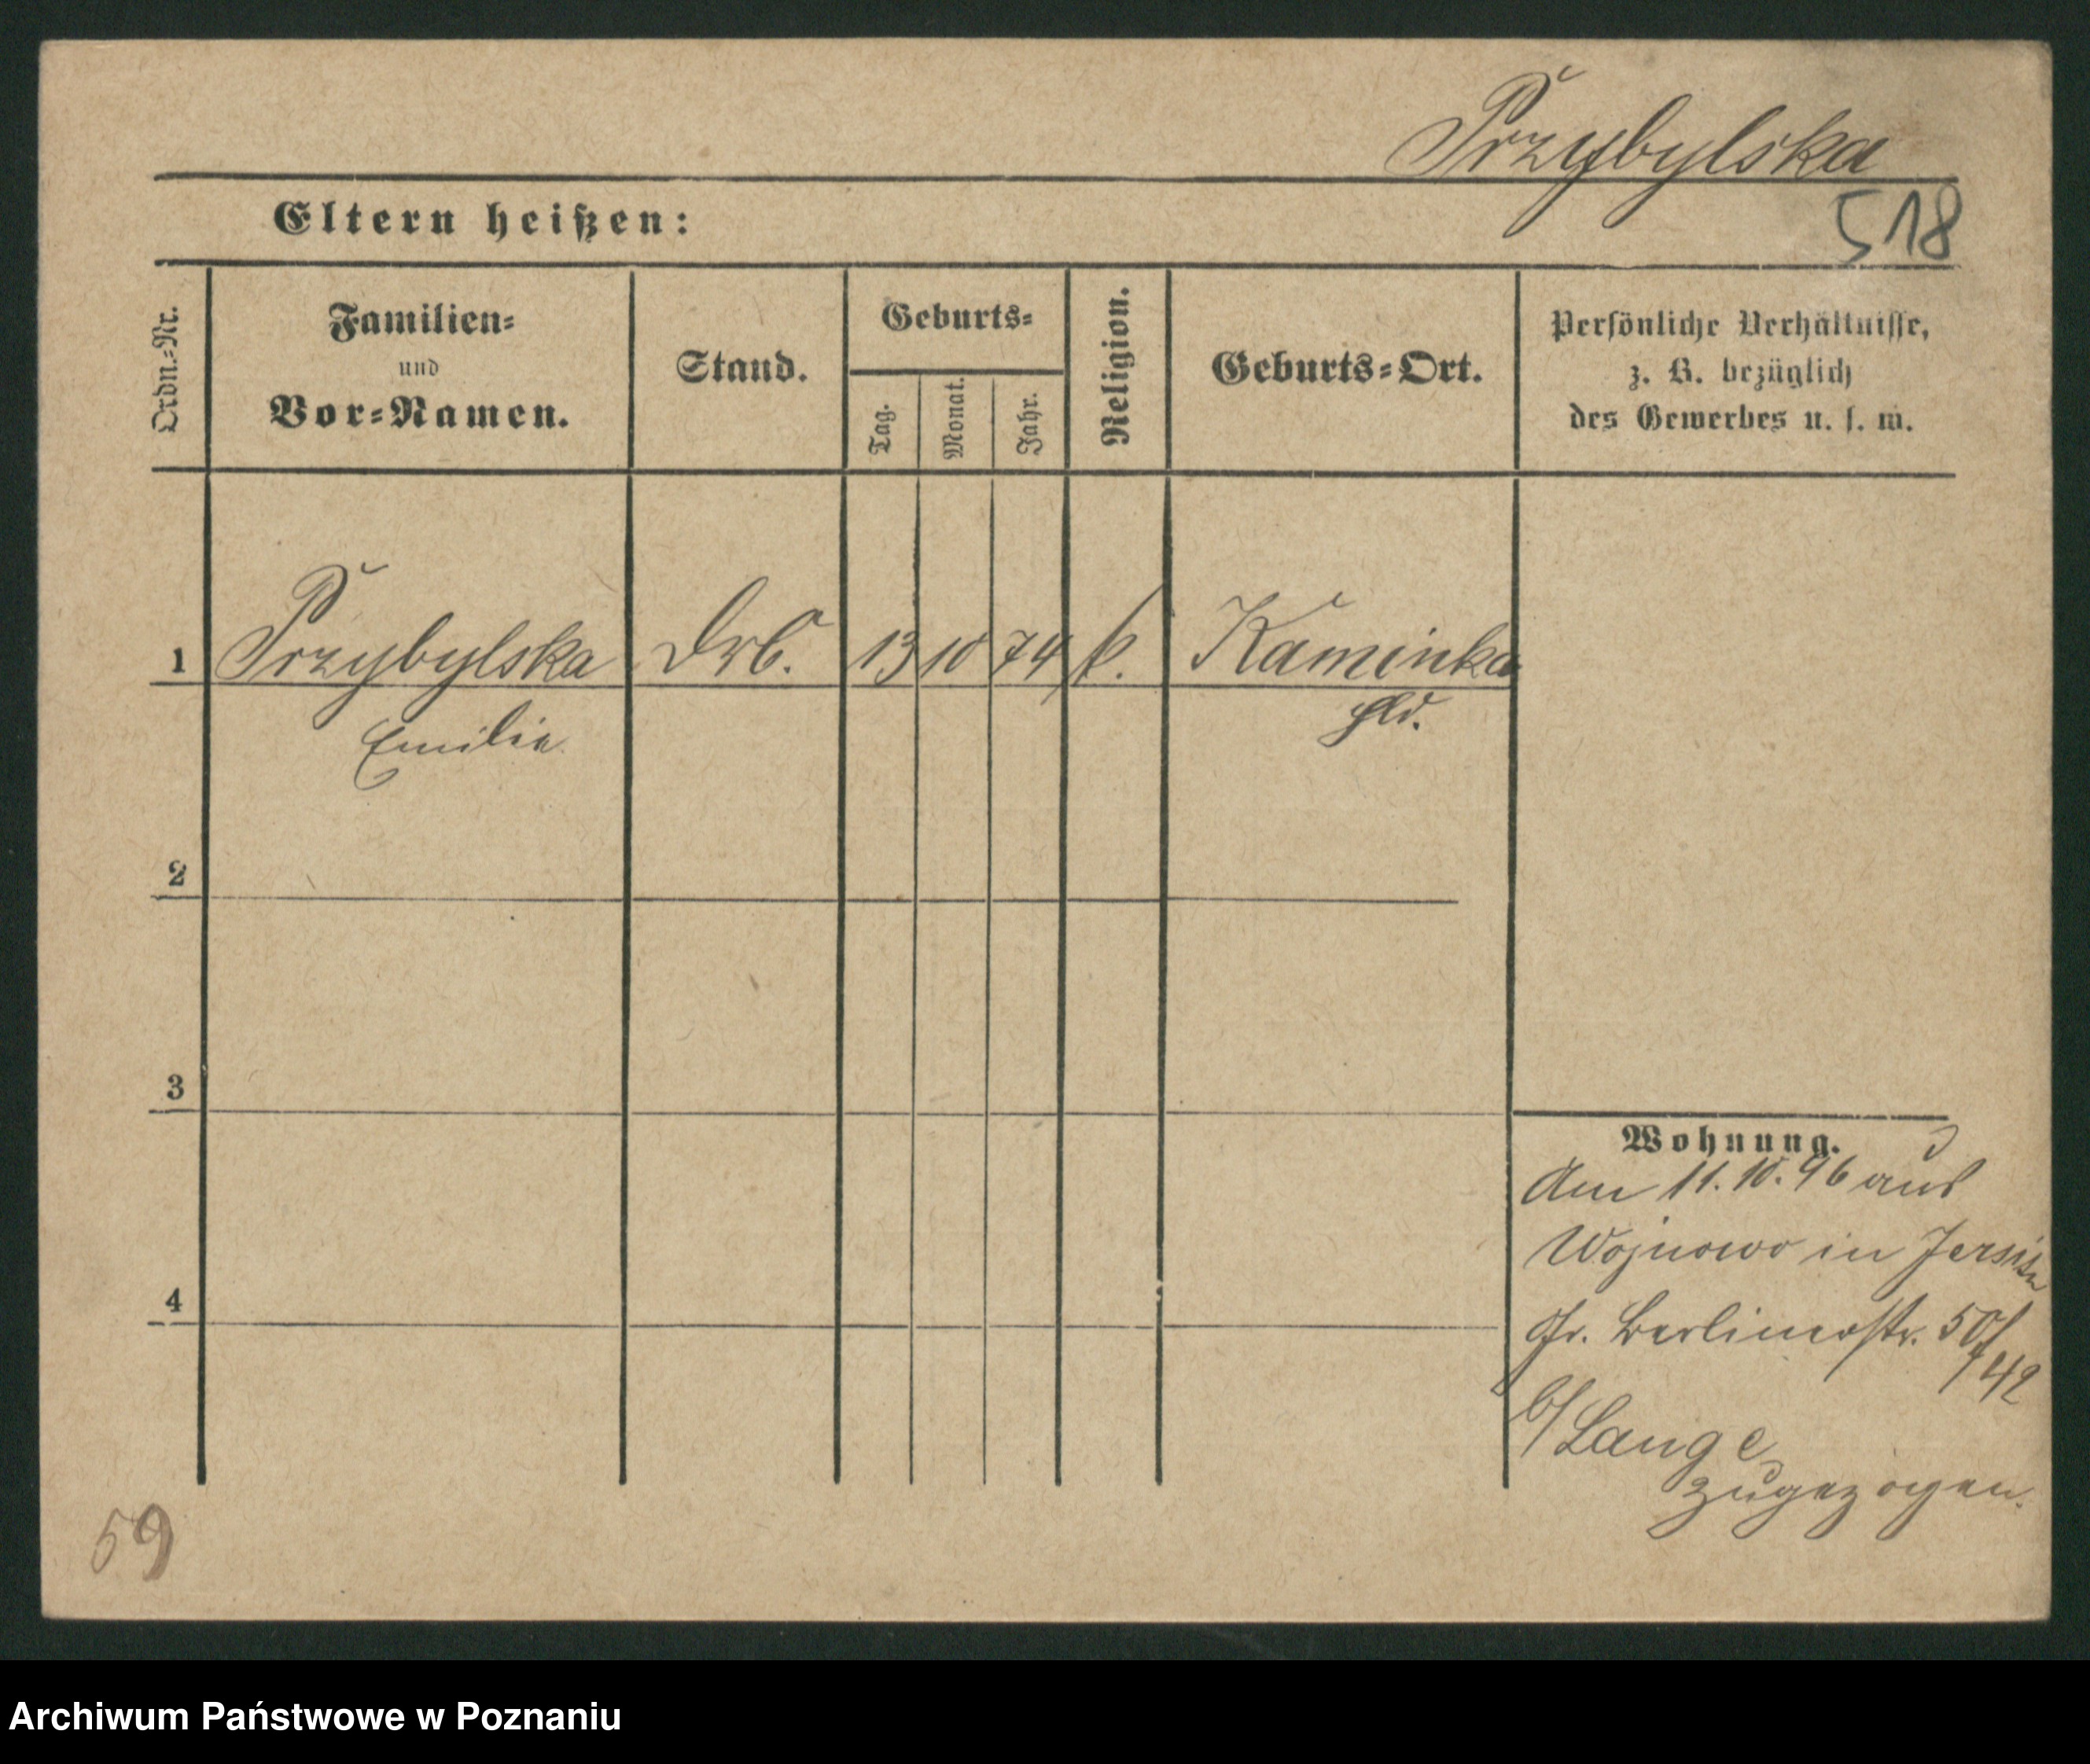 Przybylska
518
Eltern heißen:
Ordn.-Nr.
Familien-
und
Vor-Namen.
Stand.
Geburts-
Tag.
Monat.
Jahr.
Religion.
Geburts-Ort.
Persönliche Verhältnisse,
z. B. bezüglich
des Gewerbes u. s. w.
1 Przybylska 13 10 74 k. Kaminka
Emilie
2
3
4
Wohnung.
Am 11.10.96 aus
Wojnowo in Jersitz
Gr. Berlinerstr. 50/
42
b/Lange
zugezogen.
59
Archiwum Państwowe w Poznaniu